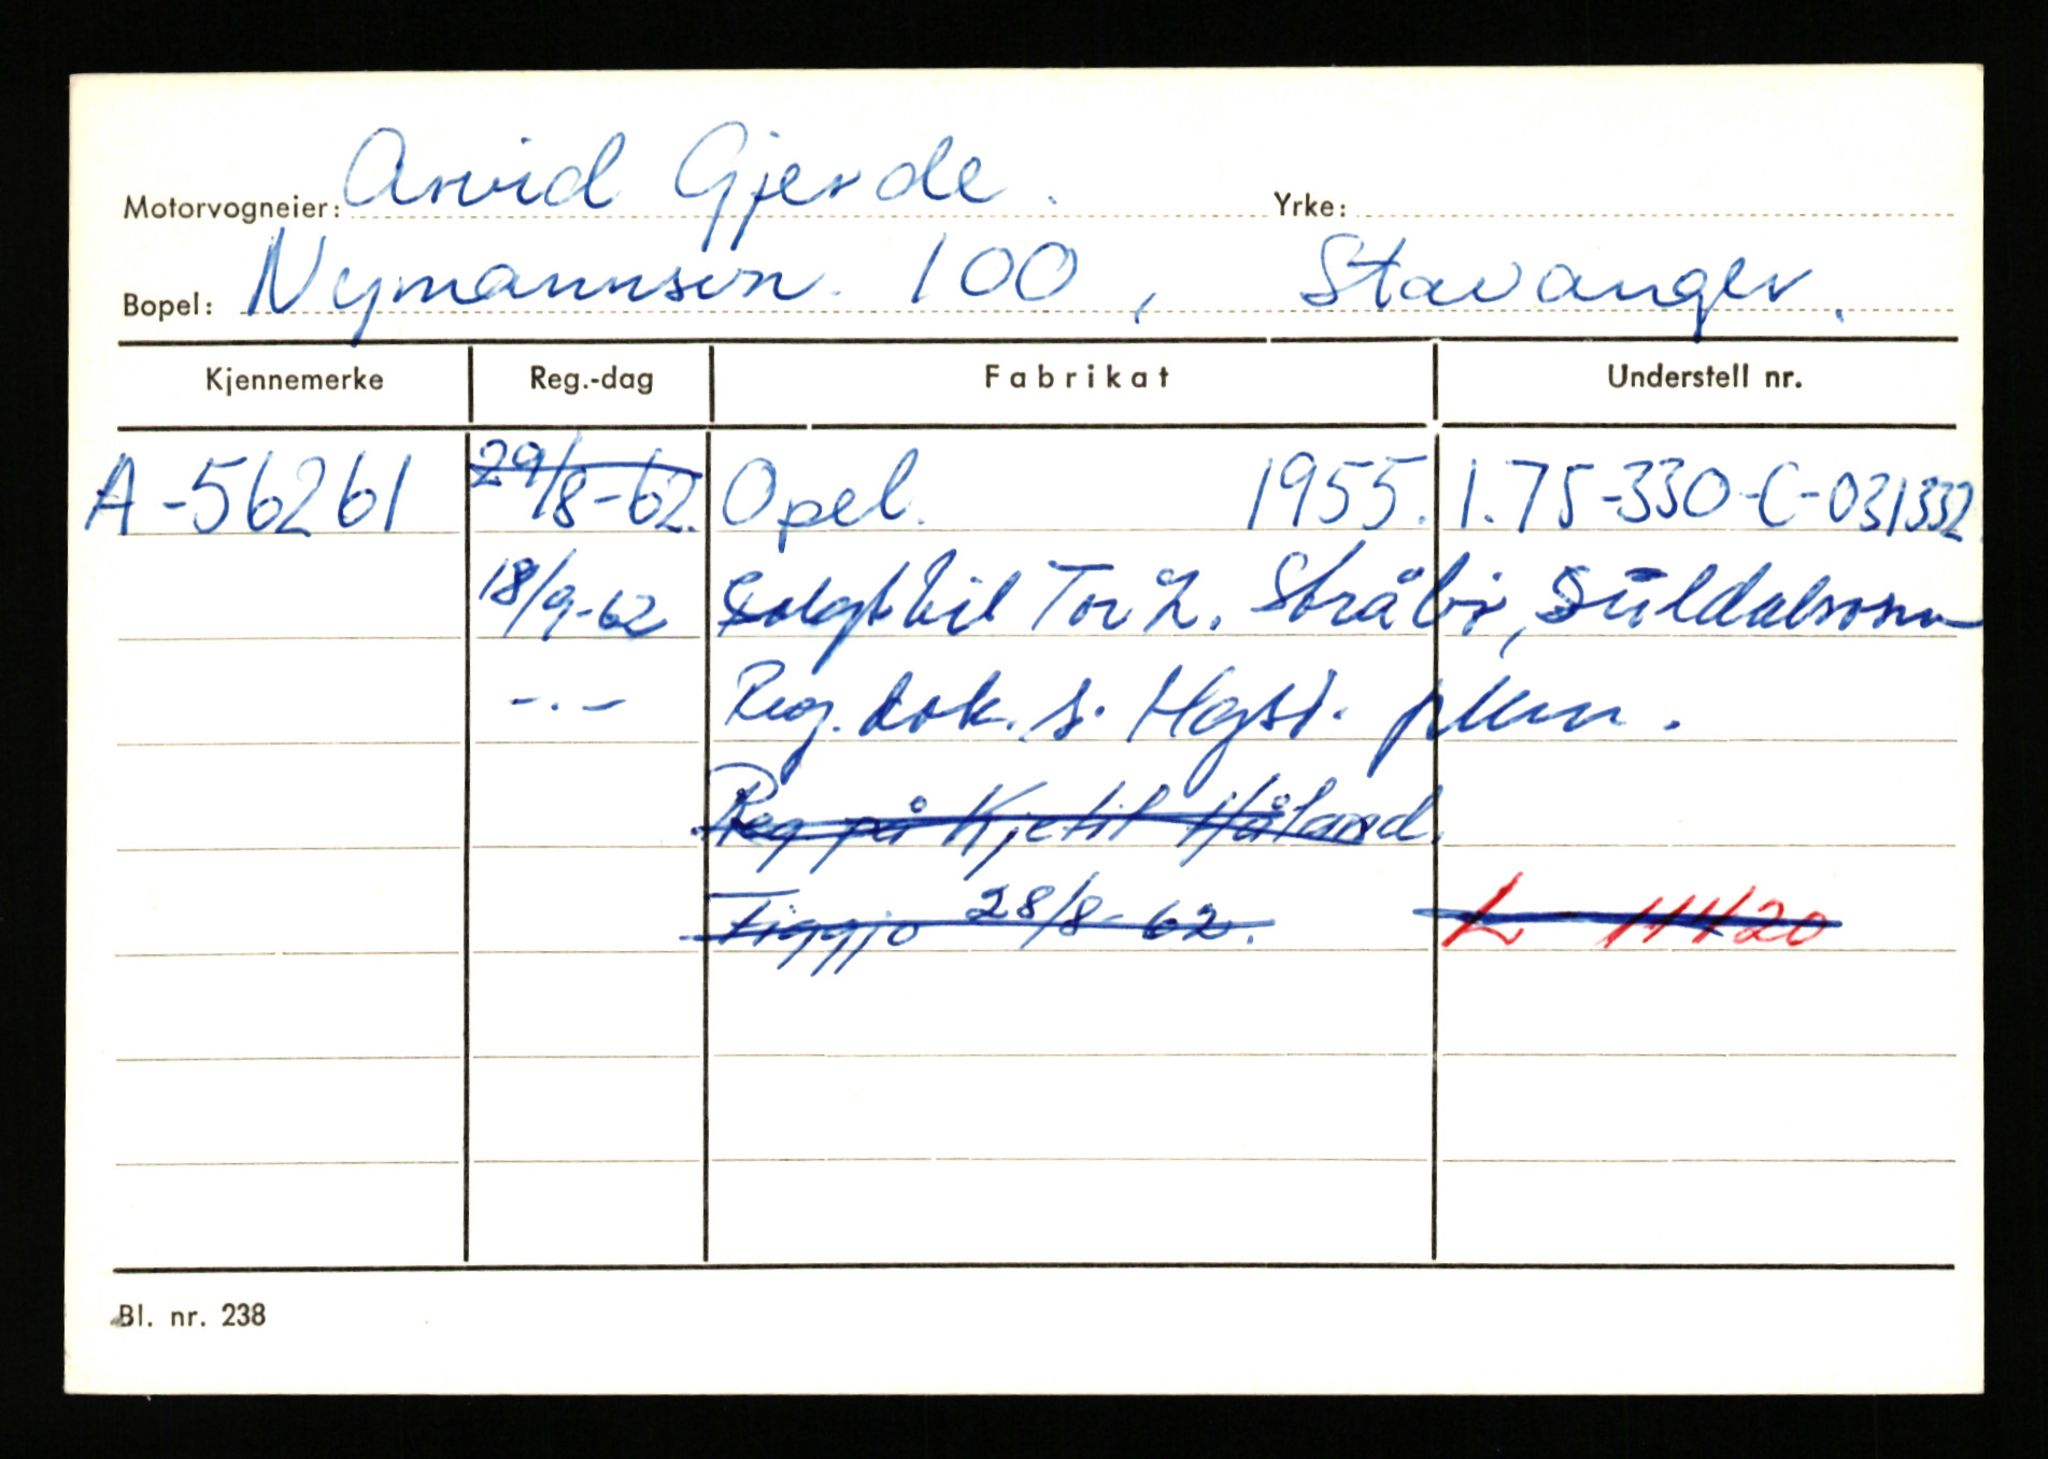 Motorvogneier: Arvid Gjerde. Yrke:
Bopel: Nymannsvn. 100, Stavanger.
Kjennemerke Reg.-dag Fabrikat Understell nr.
A-56261 29/8-62. Opel. 1955. 1.75-330-C-031332
18/9-62 Solgt til Tor L. Stråbø, Suldalsosen
-.- Reg. dok. s. Hgsd. pkm.
Reg på Kjetil Håland.
Figgjo 28/8-62. L 11420
Bl. nr. 238